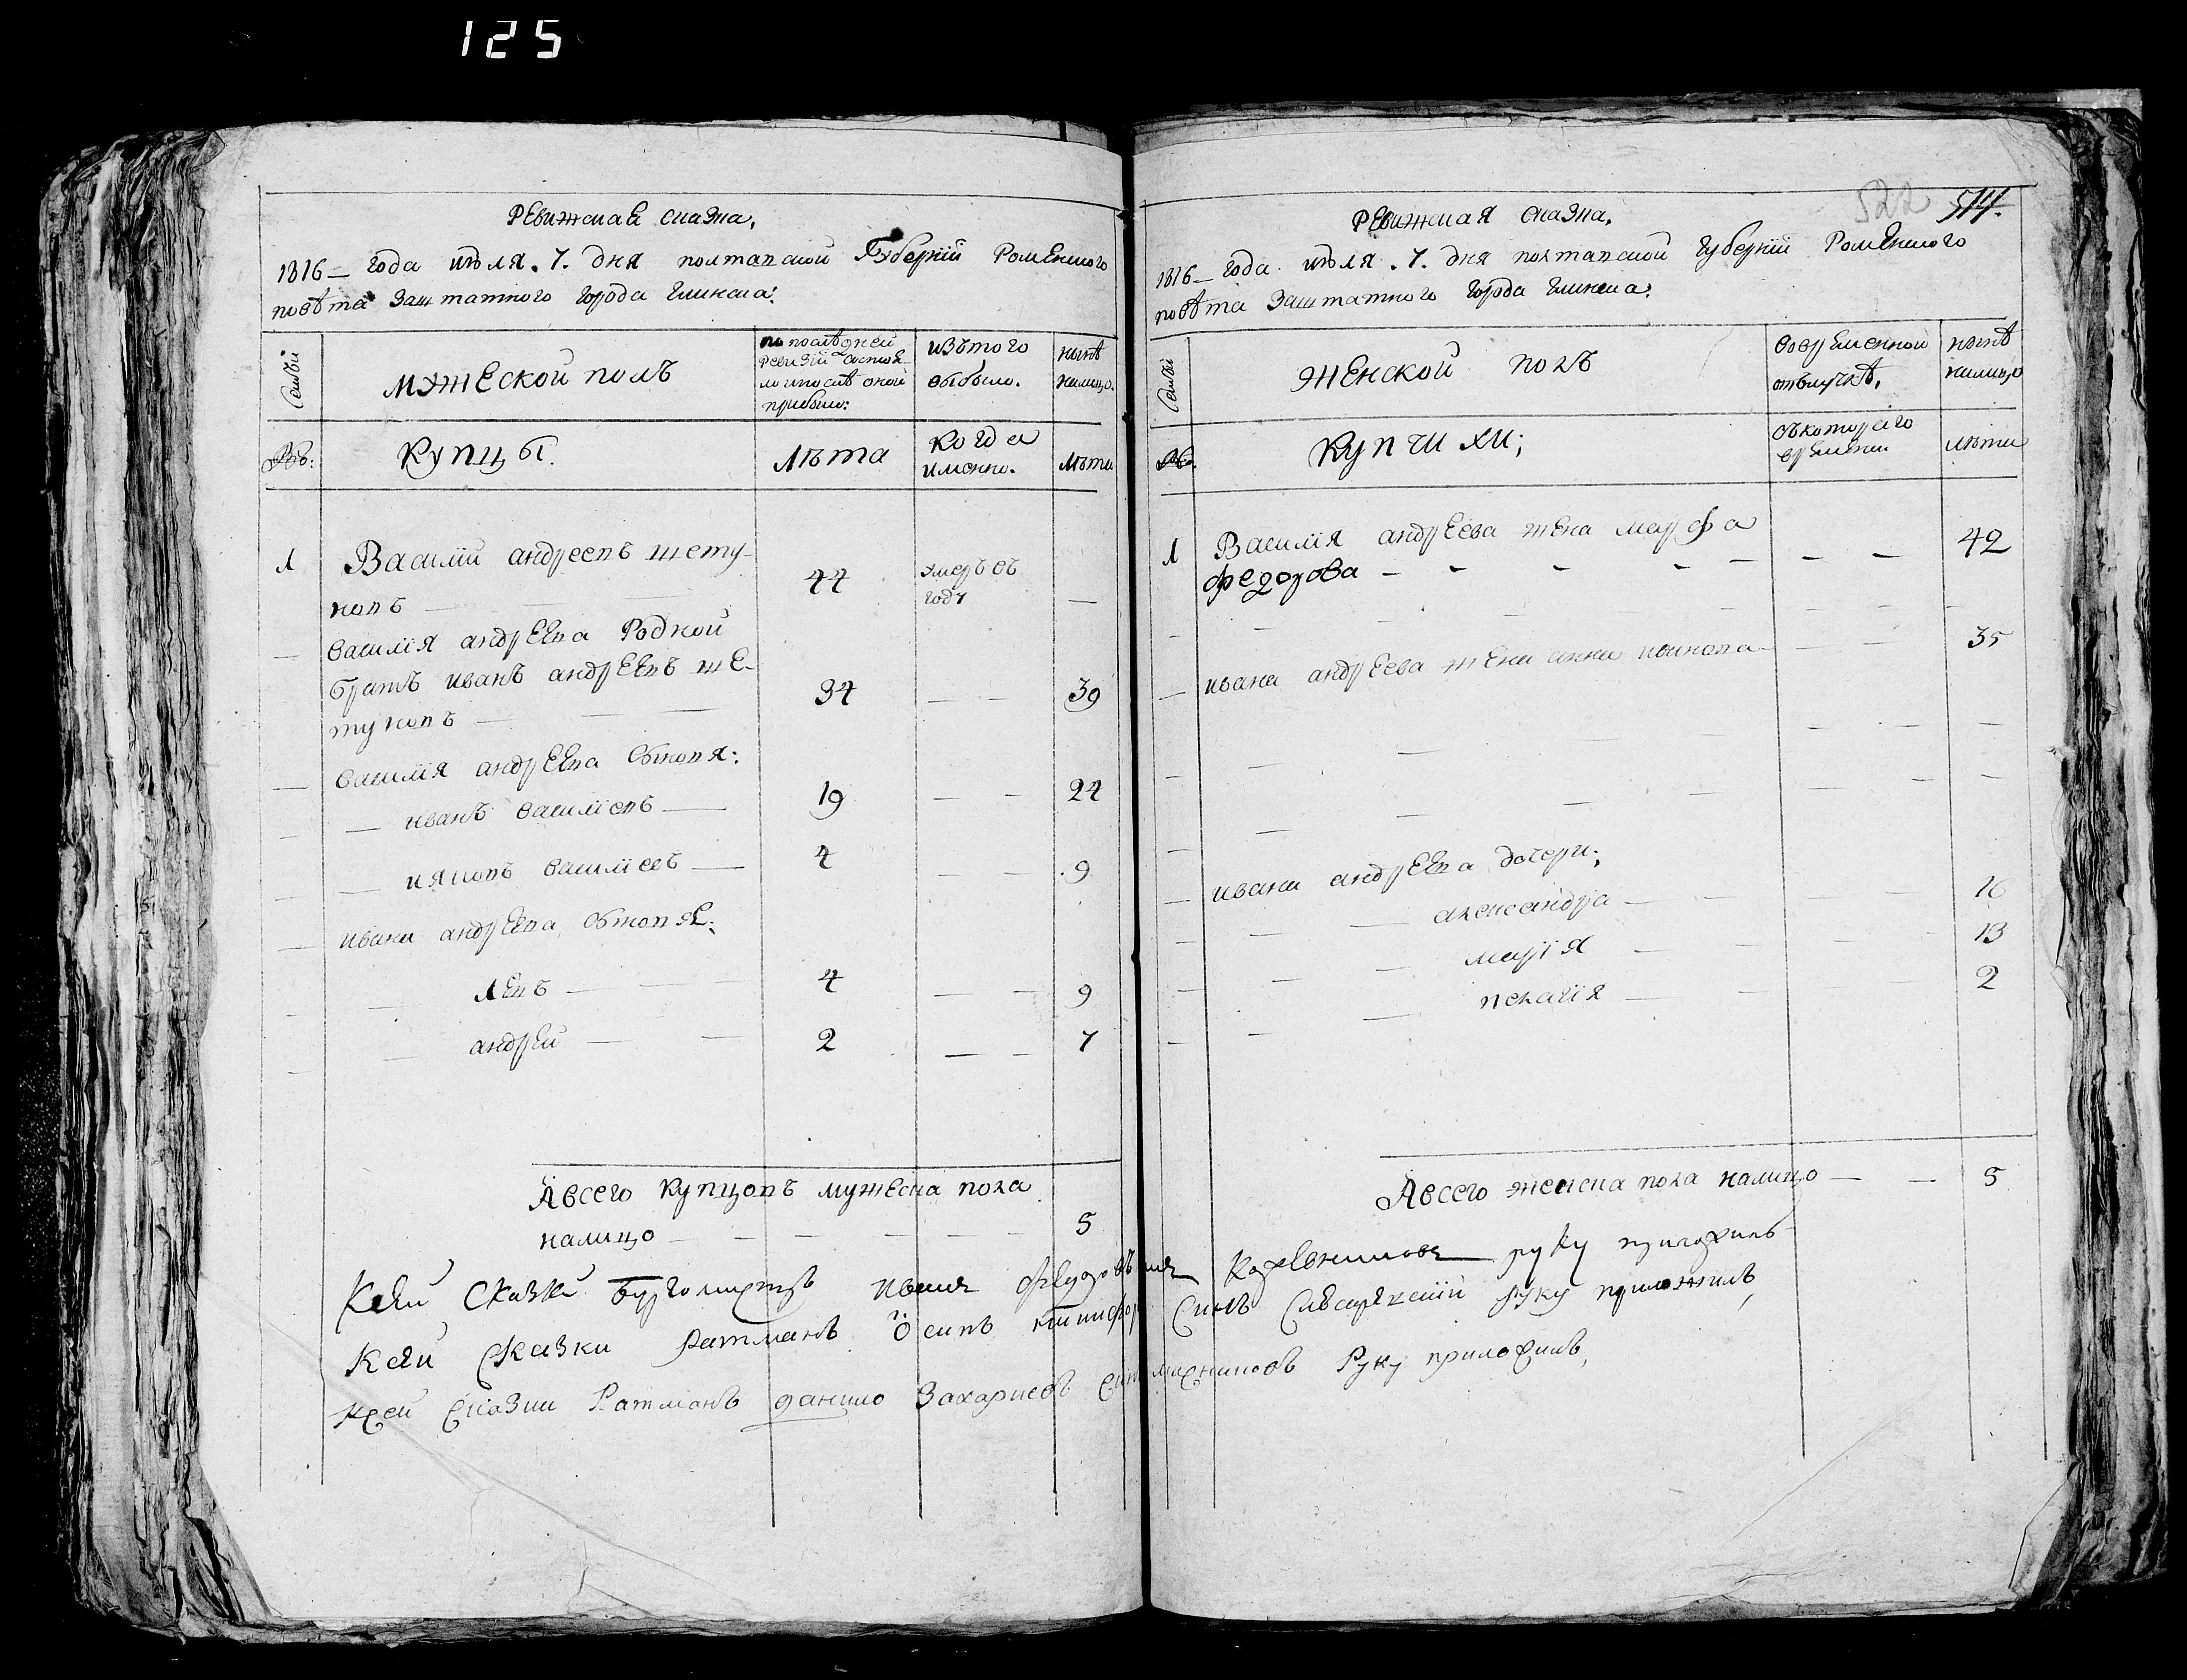 125
Ревижская сказка,
1816 – года июля . 7. дня полтавской Губернїи Роменского
повѣта Заштатного города глинска:
Семьи
мужеской полъ
по последней
ревизїи состоя–
ло и после оной
прибыло:
изътого
выбыло.
нынѣ
налицо.
№:
Купцы
Лѣта
Когда
именно.
Лѣта
1
Василїй андреевъ шету–
ковъ
44
умеръ въ
году
—
василїя андреева Родной
братъ иванъ андреевъ ше–
туковъ
34
39
василїя андреева сыновя:
иванъ василїевъ
19
24
ияковъ василїевъ
4
9
ивана андреева сыновяе:
левъ
4
9
андрей
2
7
Авсего купцовъ мужеска пола
налицо
5
522 514.
Ревижская сказка.
1816 – года июля . 7. дня полтавской губернїи Роменского
повѣта Заштатного города глинска:
Семьи
Женской полъ
вовременной
отлучкѣ,
нынѣ
налицо
№.
Купчихи;
съкоторого
времени
лѣта
1
Василїя андреева жена марфа
федорова
42
ивана андреева жена анна иванова
35
ивана андреева дочери;
александра
16
марїя
13
пелагїя
2
Авсего женска пола налицо
5
Ксей сказки Бургомистръ руку приложилъ
Ксей сказки Ратманъ Осипъ синъ руку приложилъ,
Ксей сказки Ратманъ данило Захариевъ Руку приложилъ,